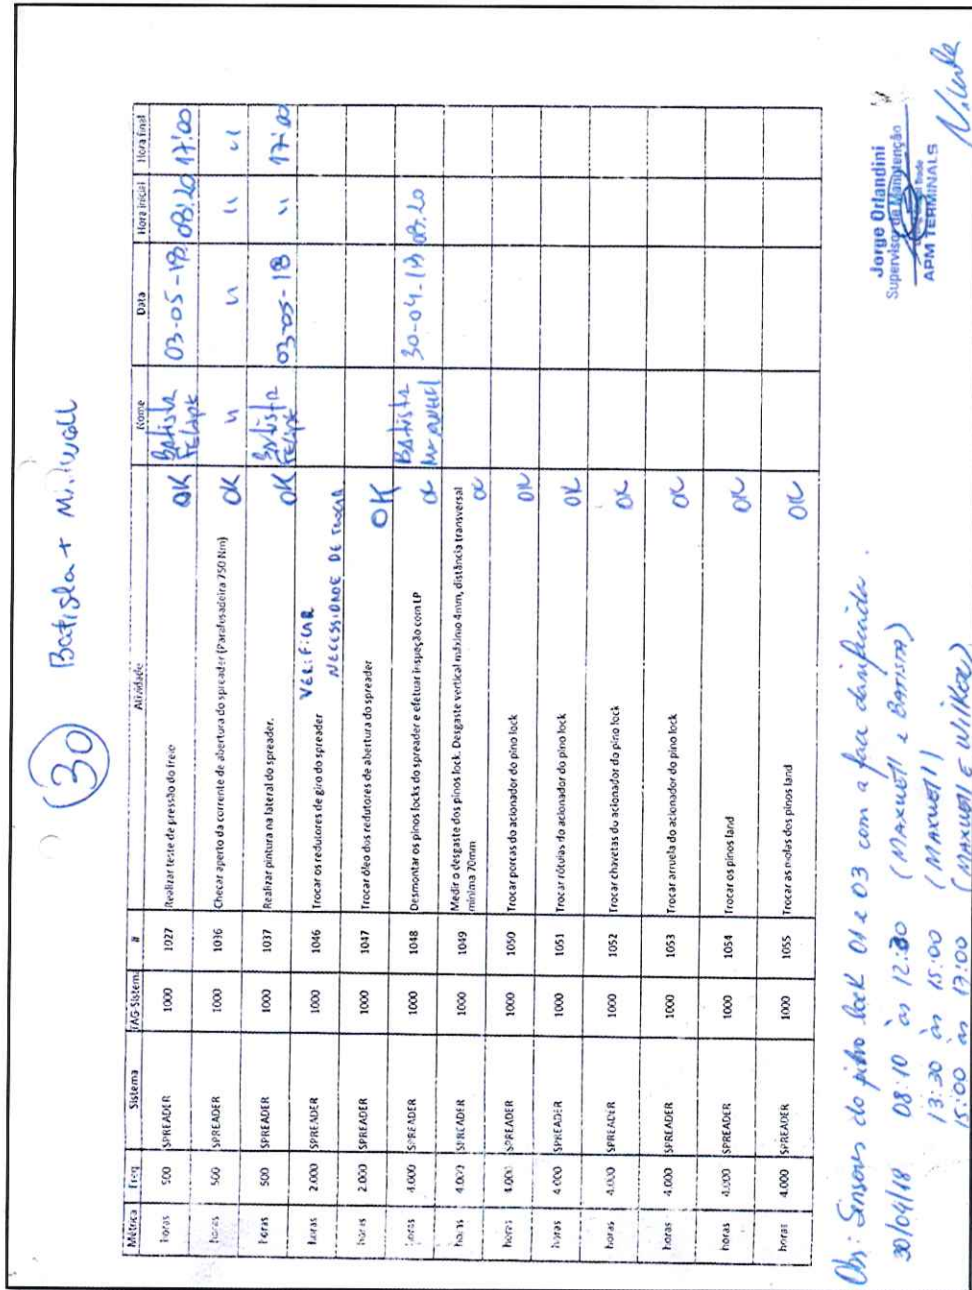 30 Batista + M
Métrica Freq Sistema TAG-Sistema # Atividade Nome Data Hora inicial Hora final
horas 500 SPREADER 1000 1027 Realizar teste de pressão do freio OK Batista Felipe 03-05-18 08:20 17:00
horas 500 SPREADER 1000 1036 Checar aperto da corrente de abertura do spreader (Parafusadeira 750 Nm) OK " " " "
horas 500 SPREADER 1000 1037 Realizar pintura na lateral do spreader. OK Batista Felipe 03-05-18 " 17:00
horas 2.000 SPREADER 1000 1046 Trocar os redutores de giro do spreader VERIFICAR
NECESSIDADE DE TROCAR
horas 2.000 SPREADER 1000 1047 Trocar óleo dos redutores de abertura do spreader OK
horas 4.000 SPREADER 1000 1048 Desmontar os pinos locks do spreader e efetuar inspeção com LP OK Batista 30-04-18 08:20
horas 4.000 SPREADER 1000 1049 Medir o desgaste dos pinos lock. Desgaste vertical máximo 4mm, distância transversal
mínima 70mm OK
horas 4.000 SPREADER 1000 1050 Trocar porcas do acionador do pino lock OK
horas 4.000 SPREADER 1000 1051 Trocar rótulas do acionador do pino lock OK
horas 4.000 SPREADER 1000 1052 Trocar chavetas do acionador do pino lock OK
horas 4.000 SPREADER 1000 1053 Trocar arruela do acionador do pino lock OK
horas 4.000 SPREADER 1000 1054 Trocar os pinos land OK
horas 4.000 SPREADER 1000 1055 Trocar as molas dos pinos land OK
Obs: Sensores do pino lock 01 e 03 com a face danificada.
30/04/18 08:10 às 12:30 (MAXUELL e BATISTA)
13:30 às 15:00 (MAXUELL)
15:00 às 17:00 (MAXUELL E WILKER)
Jorge Orlandini
Supervisor de Manutenção
APM TERMINALS